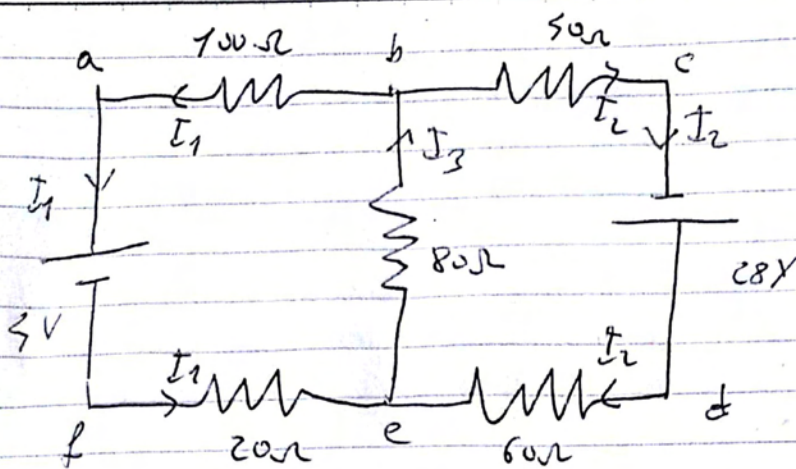 a 100Ω b 50Ω c
I₁ I₂ I₂
I₁ I₃
80Ω
28V
5V
I₁ I₂
f 20Ω e 60Ω d